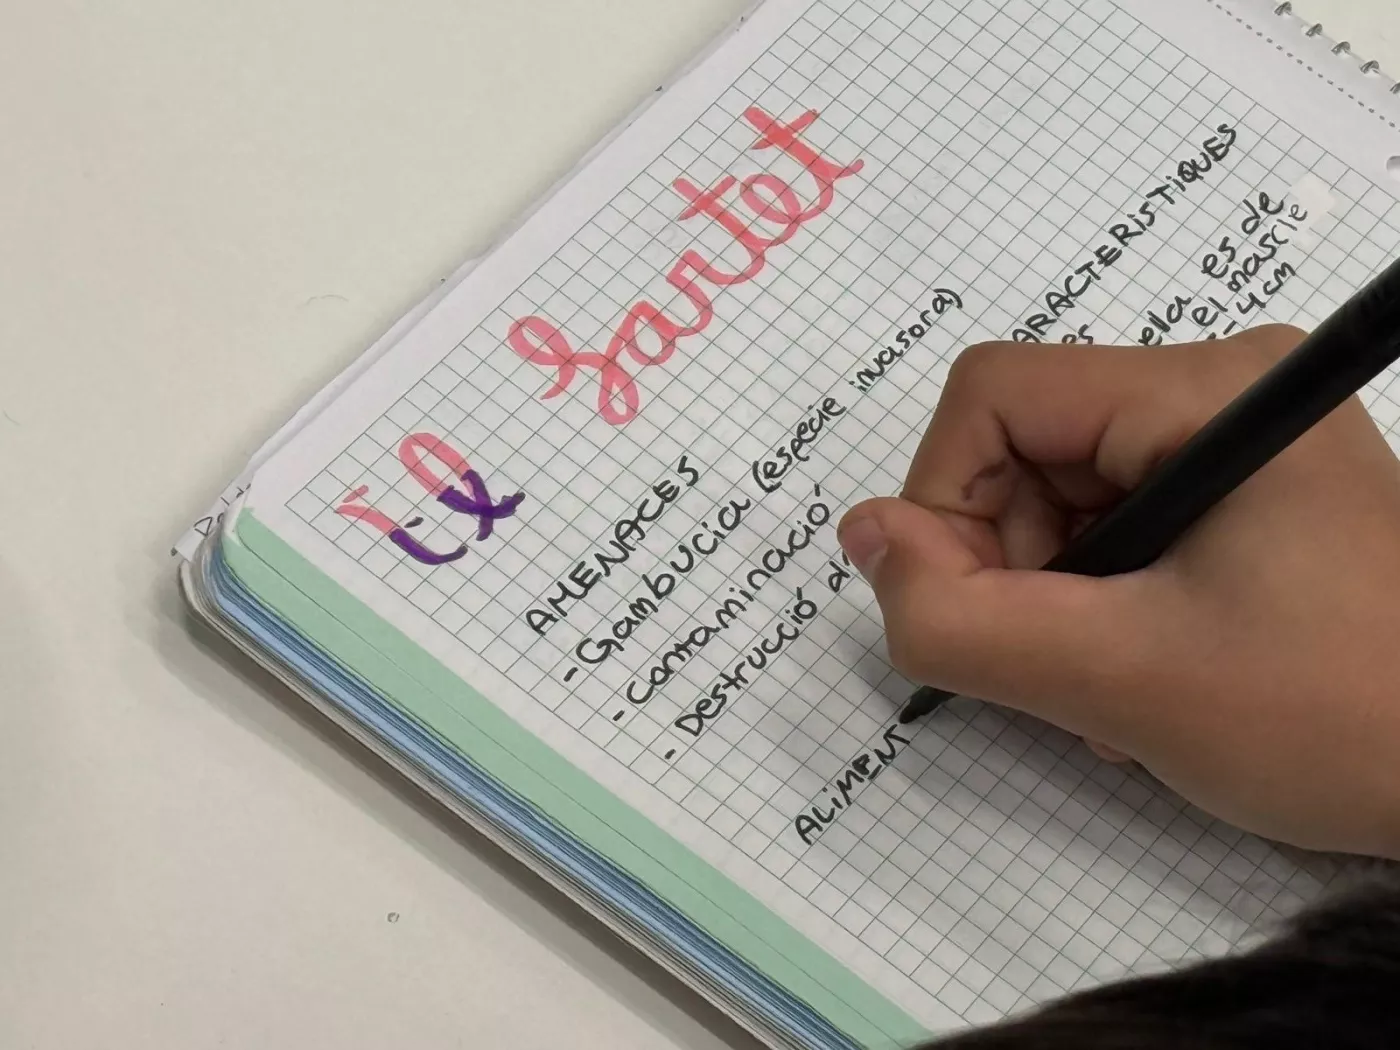 fartet
AMENACES
- Gambucia (espècie invasora)
- Contaminació
- Destrucció d
ALiMENT
ARACTERiSTiQUES
es
es de
el mascle
-4cm